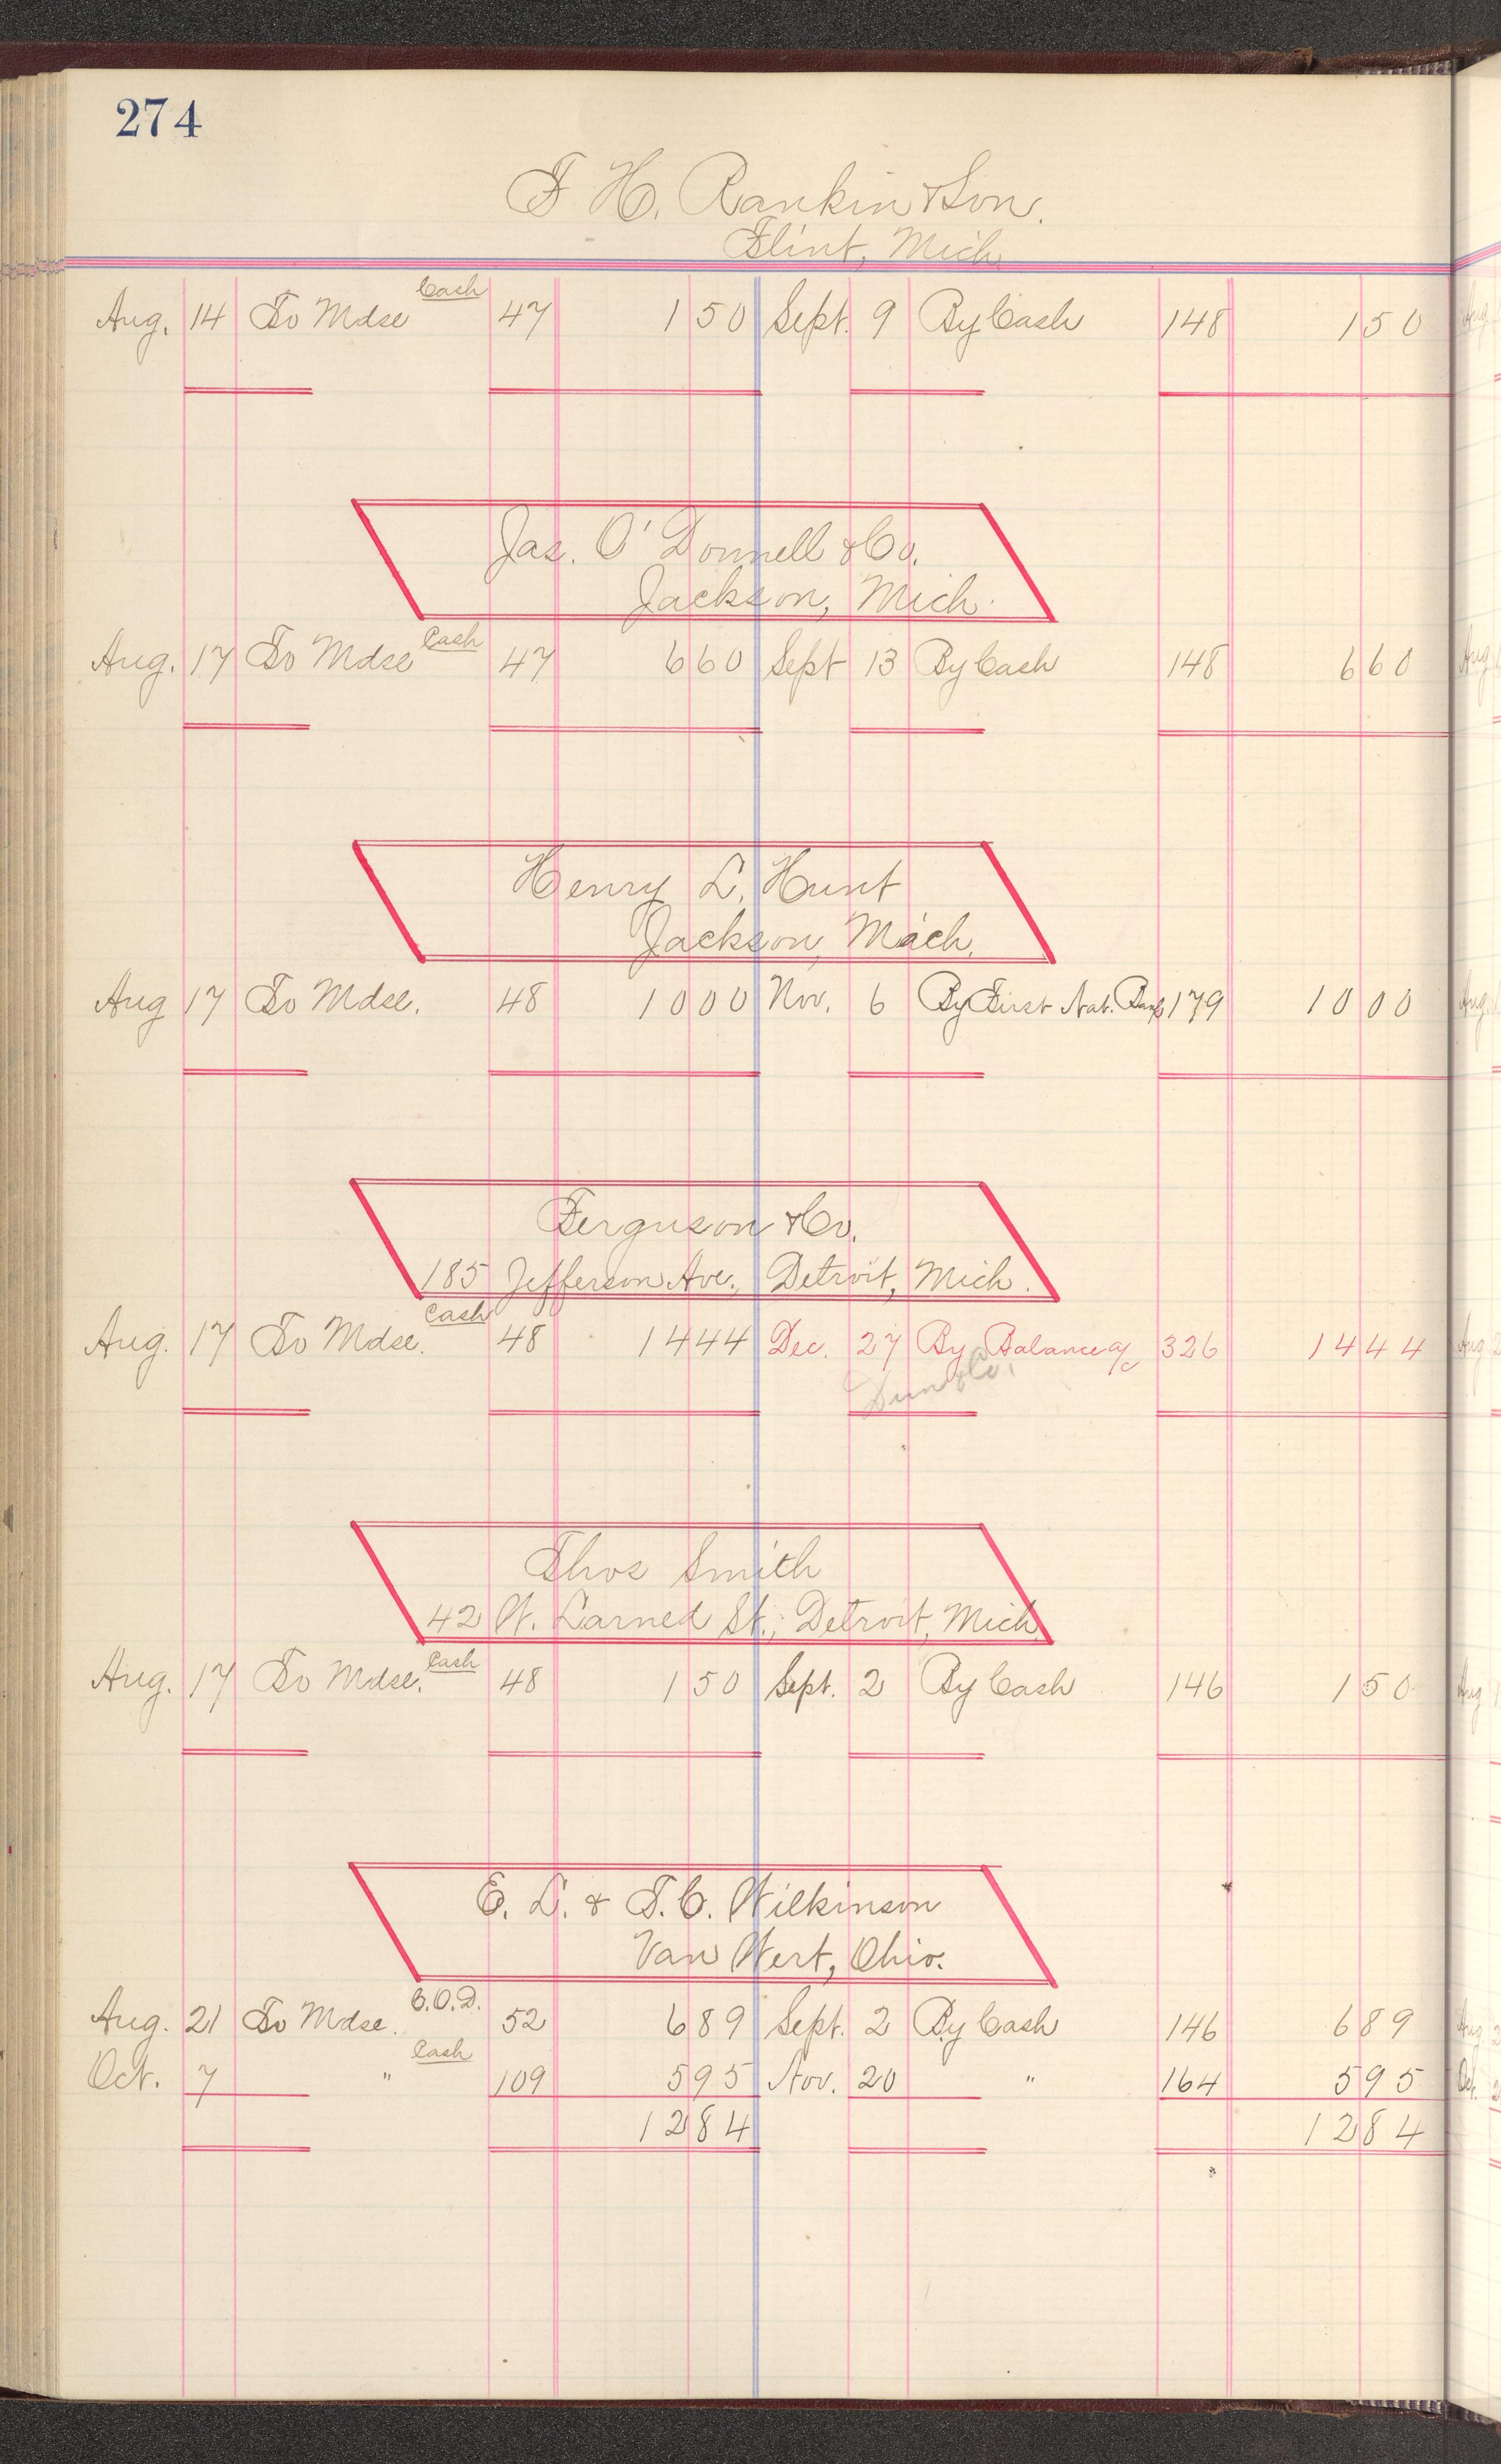 274
F H. Rankin & Son.
Flint, Mich.
Cash
Aug. 14 To Mdse 47 1 50 Sept. 9 By Cash 148 1 50
Jas. O'Donnell & Co.
Jackson, Mich.
Cash
Aug. 17 To Mdse 47 6 60 Sept 13 By Cash 148 6 60
Henry L. Hunt
Jackson, Mich.
Aug 17 To Mdse. 48 10 00 Nov. 6 By First Nat. Bank 179 10 00
Ferguson & Co.
185 Jefferson Ave., Detroit, Mich.
Cash
Aug. 17 To Mdse. 48 14 44 Dec. 27 By Balance a/c 326 14 44
Dun & Co.
Thos Smith
42 W. Larned St., Detroit, Mich
Cash
Aug. 17 To Mdse. 48 1 50 Sept. 2 By Cash 146 1 50
E. L. & T. C. Wilkinson
Van Wert, Ohio.
C.O.D.
Aug. 21 To Mdse. 52 6 89 Sept. 2 By Cash 146 6 89
Cash
Oct. 7 " 109 5 95 Nov. 20 " 164 5 95
12 84 12 84